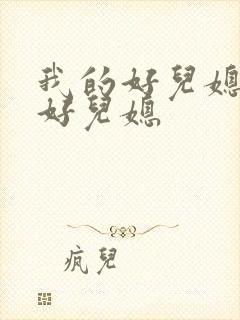 我的好兒媳
好兒媳
疯兒